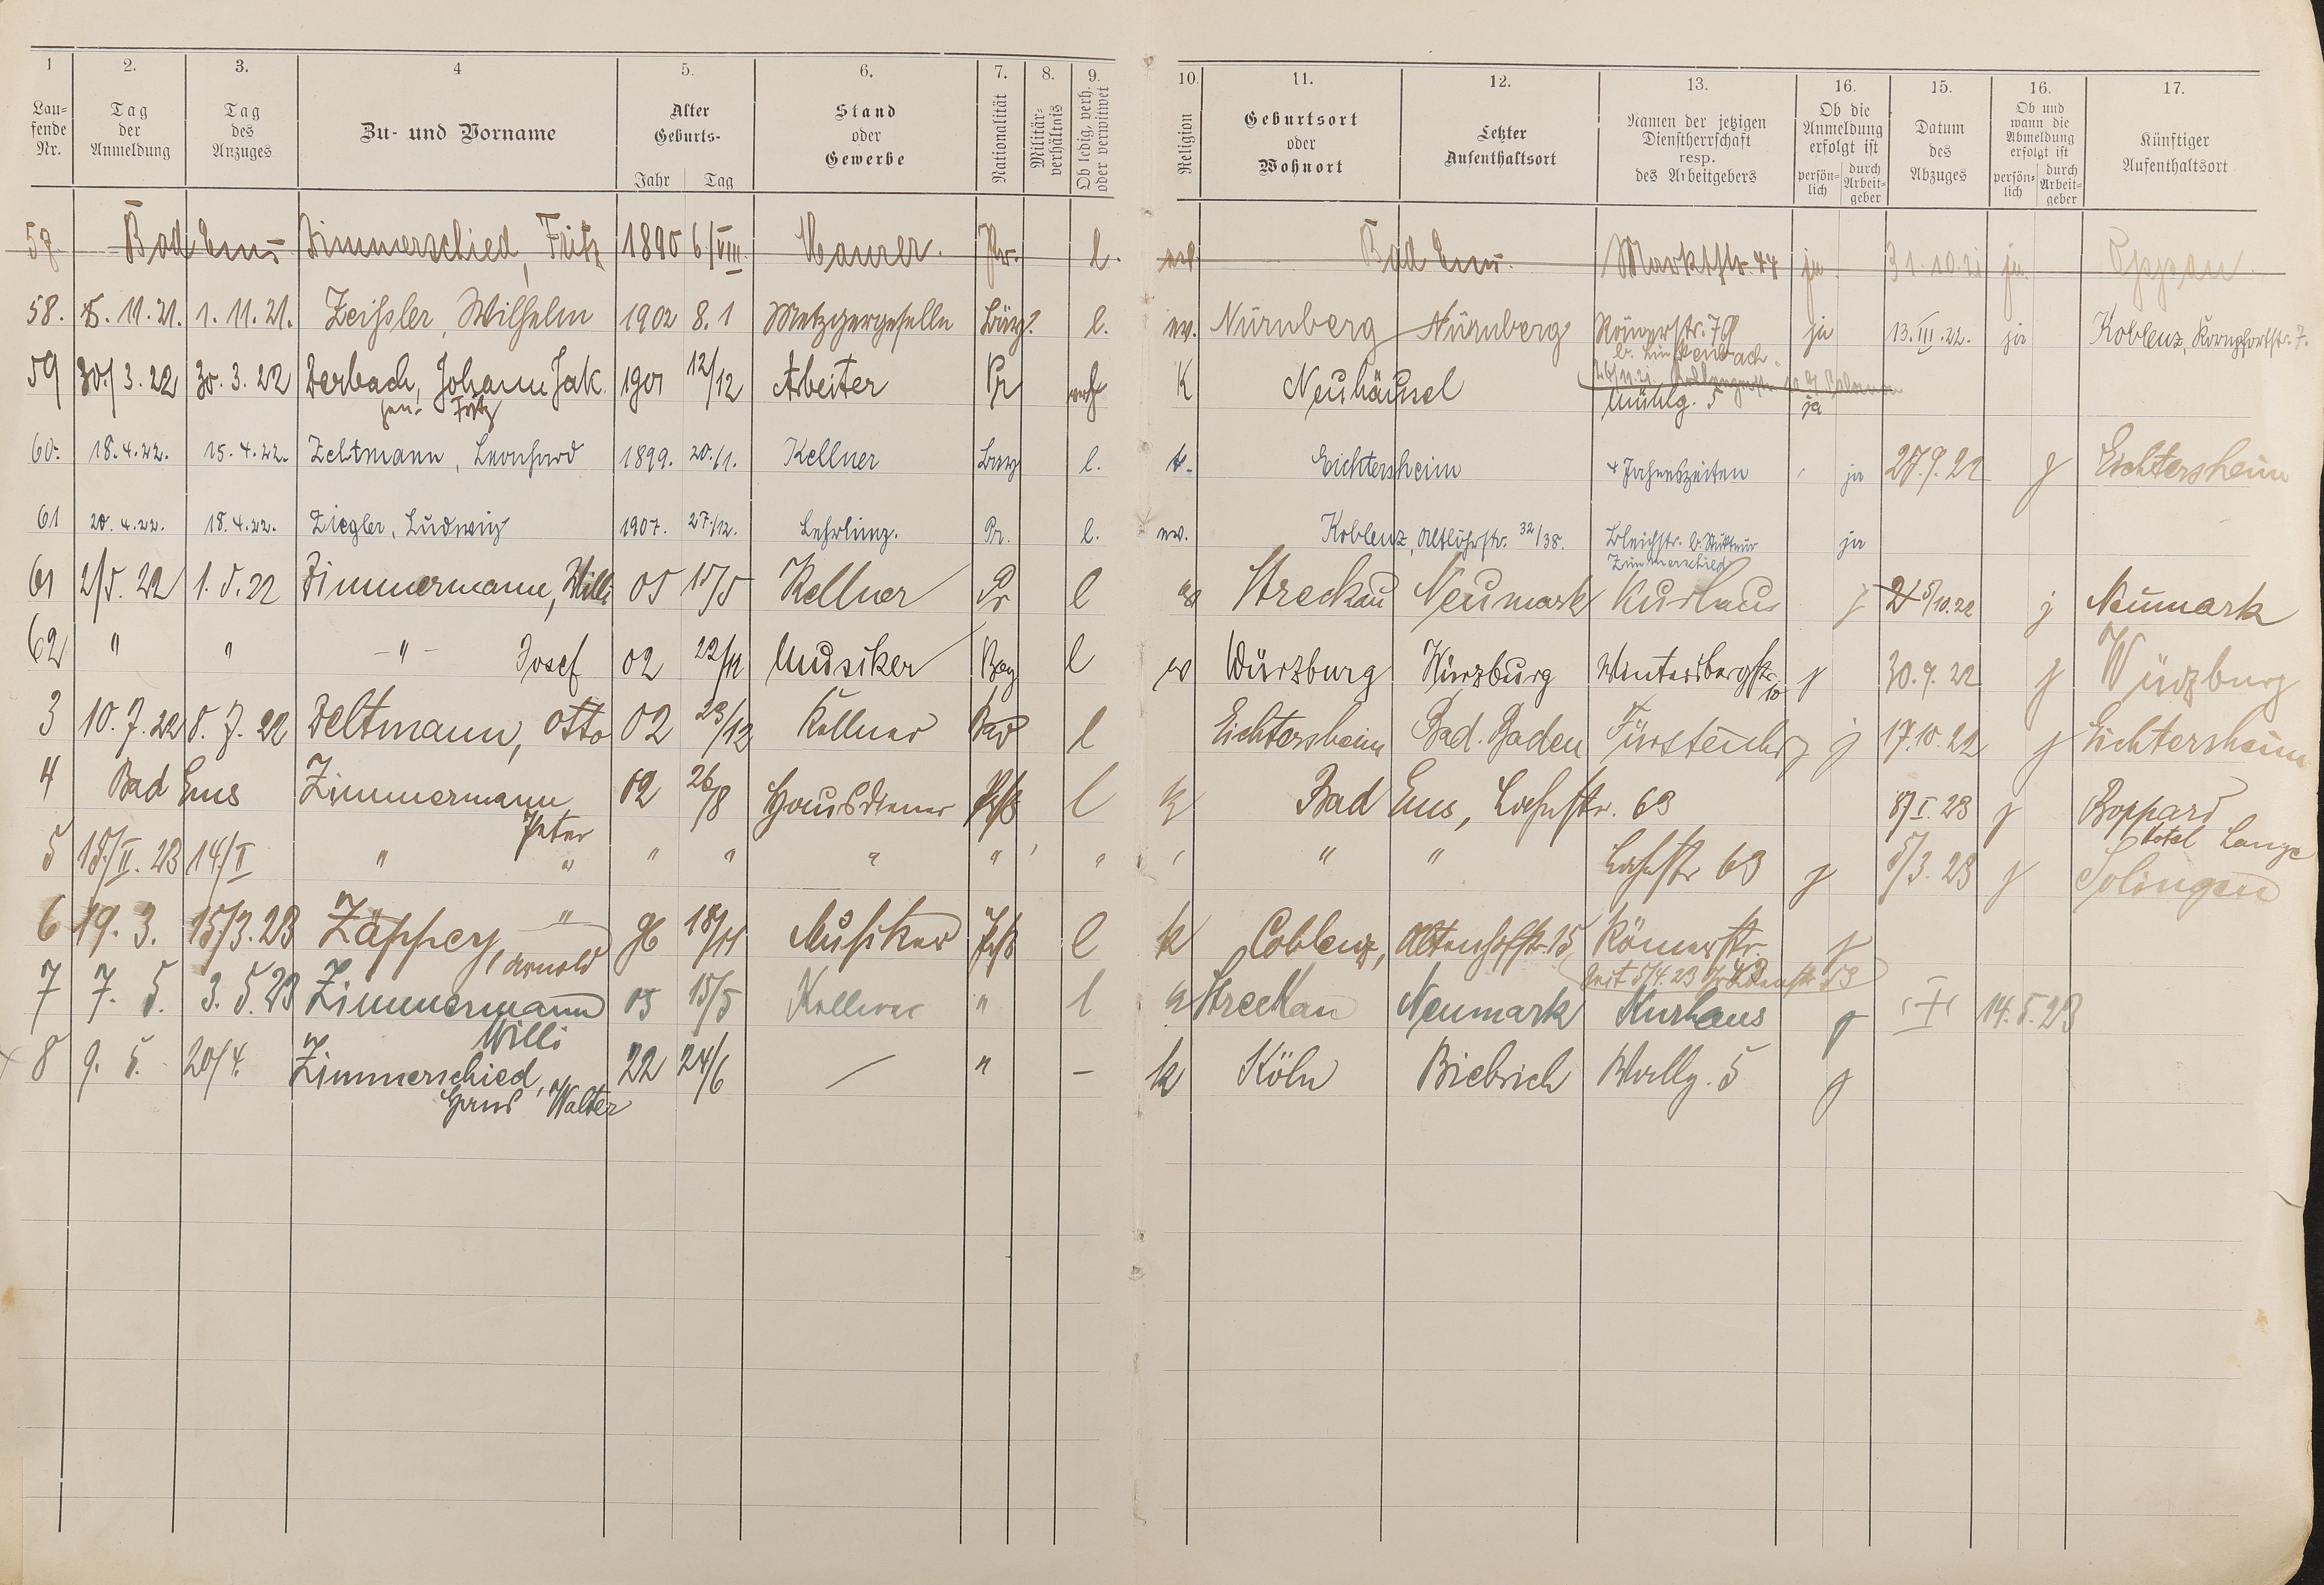 1 2. 3. 4 5. 6. 7. 8. 9. 10. 11. 12. 13. 16. 15. 16. 17.
Laufende Nr. Tag der Anmeldung Tag des Anzuges Zu- und Vorname Alter Geburts- Jahr Tag Stand oder Gewerbe Nationalität Militärverhältnis Ob ledig, verh. oder verwitwet Religion Geburtsort oder Wohnort Letzter Aufenthaltsort Namen der jetzigen Dienstherrschaft resp. des Arbeitgebers Ob die Anmeldung erfolgt ist persönlich durch Arbeitgeber Datum des Abzuges Ob und wann die Abmeldung erfolgt ist persönlich durch Arbeitgeber Künftiger Aufenthaltsort
57. Bad Ems Zimmerschied, Fritz 1890 6/VIII. Maurer. Pr. l. ev. Bad Ems. Marktstr. 44 ja 31.10.21 ja
58. 5. 11. 21. 1. 11. 21. Zeißler, Wilhelm 1902 8. 1 Metzgergeselle Bay. l. ev. Nürnberg Nürnberg Römerstr. 79 ja 13. III. 22. ja Koblenz, Kornpfortstr. 7.
59 30./3. 22 30. 3. 22 Zerbach, Johann Jak. 1901 12/12 Arbeiter Pr verh K Neuhäusel Mühlg. 5 ja
gen. Fritz
60. 18. 4. 22. 15. 4. 22. Zeltmann, Leonhard 1899. 20./1. Kellner Bay l. k. Eichtersheim 4 Jahreszeiten ja 27. 9. 22 j Eichtersheim
61 20. 4. 22. 18. 4. 22. Ziegler, Ludwig 1907. 27./12. Lehrling. Pr. l. ev. Koblenz, Altlöhrstr. 32/38. Bleichstr. b.
Zimmerschied ja
61 2/5. 22 1. 5. 22 Zimmermann, Willi 05 15/5 Kellner Pr l ev Streckau Neumark Kurhaus j 25/10.22 j Neumark
62 " " - " - Josef 02 22/11 Musiker Bay l ev Würzburg Würzburg Wintersbergstr. 10 j 30. 9. 22 j Würzburg
3 10. 7. 22 5. 7. 22 Zeltmann, Otto 02 23/12 Kellner Bad l Eichtersheim Bad. Baden Fürstenhof j 17. 10. 22 j Eichtersheim
4 Bad Ems Zimmermann 02 26/8 Hausdiener Prß l k Bad Ems, Lahnstr. 63 I. 23 j Boppard
Peter
Hotel Lange
5 15/II. 23 14/II " " " " " " " " " " Lahnstr 63 j 5/3. 23 j Solingen
6 19. 3. 15/3. 23 Zäppey, Arnold 96 18/11 Musiker Prß l k Coblenz, Altenhofstr. 15 Römerstr. j
7 7. 5. 3. 5. 23 Zimmermann 05 15/5 Kellner " l ev Streckau Neumark Kurhaus j 14. 5. 23
Willi
8 9. 5. 20/4. Zimmerschied, 22 24/6 — " – k Köln Biebrich Wallg. 5 j
Hans Walter